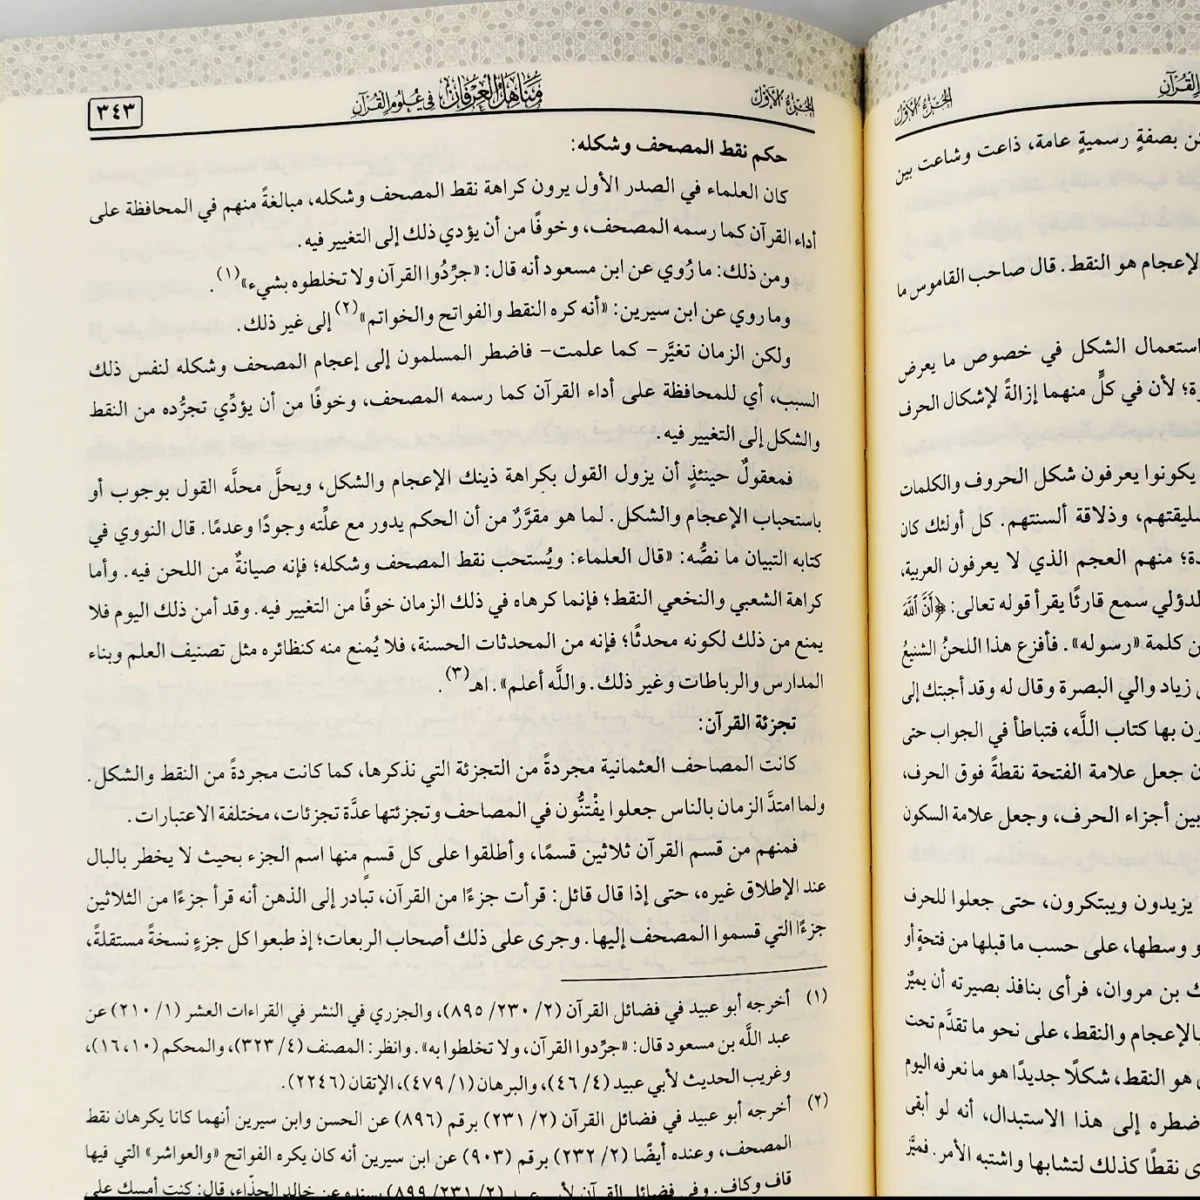 الجزء الأول
مناهل العرفان في علوم القرآن
٣٤٣
حكم نقط المصحف وشكله:
كان العلماء في الصدر الأول يرون كراهة نقط المصحف وشكله، مبالغةً منهم في المحافظة على
أداء القرآن كما رسمه المصحف، وخوفًا من أن يؤدي ذلك إلى التغيير فيه.
ومن ذلك: ما رُوي عن ابن مسعود أنه قال: «جرِّدُوا القرآن ولا تخلطوه بشيء»(١).
وما روي عن ابن سيرين: «أنه كره النقط والفواتح والخواتم»(٢) إلى غير ذلك.
ولكن الزمان تغيَّر – كما علمت– فاضطر المسلمون إلى إعجام المصحف وشكله لنفس ذلك
السبب، أي للمحافظة على أداء القرآن كما رسمه المصحف، وخوفًا من أن يؤدِّي تجرُّده من النقط
والشكل إلى التغيير فيه.
فمعقولٌ حينئذٍ أن يزول القول بكراهة ذينك الإعجام والشكل، ويحلَّ محلَّه القول بوجوب أو
باستحباب الإعجام والشكل. لما هو مقرَّرٌ من أن الحكم يدور مع علَّته وجودًا وعدمًا. قال النووي في
كتابه التبيان ما نصُّه: «قال العلماء: ويُستحب نقط المصحف وشكله؛ فإنه صيانةٌ من اللحن فيه. وأما
كراهة الشعبي والنخعي النقط؛ فإنما كرهاه في ذلك الزمان خوفًا من التغيير فيه. وقد أمن ذلك اليوم فلا
يمنع من ذلك لكونه محدثًا؛ فإنه من المحدثات الحسنة، فلا يُمنع منه كنظائره مثل تصنيف العلم وبناء
المدارس والرباطات وغير ذلك. واللَّه أعلم». اهـ(٣).
تجزئة القرآن:
كانت المصاحف العثمانية مجردةً من التجزئة التي نذكرها، كما كانت مجردةً من النقط والشكل.
ولما امتدَّ الزمان بالناس جعلوا يفْتنُّون في المصاحف وتجزئتها عدَّة تجزئات، مختلفة الاعتبارات.
فمنهم من قسم القرآن ثلاثين قسمًا، وأطلقوا على كل قسمٍ منها اسم الجزء بحيث لا يخطر بالبال
عند الإطلاق غيره، حتى إذا قال قائل: قرأت جزءًا من القرآن، تبادر إلى الذهن أنه قرأ جزءًا من الثلاثين
جزءًا التي قسموا المصحف إليها. وجرى على ذلك أصحاب الربعات؛ إذ طبعوا كل جزءٍ نسخةً مستقلةً،
(١) أخرجه أبو عبيد في فضائل القرآن (٢/ ٢٣٠/ ٨٩٥)، والجزري في النشر في القراءات العشر (١/ ٢١٠) عن
عبد اللَّه بن مسعود قال: «جرِّدوا القرآن، ولا تخلطوا به». وانظر: المصنف (٤/ ٣٢٣)، والمحكم (١٠، ١٦)،
وغريب الحديث لأبي عبيد (٤/ ٤٦)، والبرهان (١/ ٤٧٩)، الإتقان (٢٢٤٦).
(٢) أخرجه أبو عبيد في فضائل القرآن (٢/ ٢٣١) برقم (٨٩٦) عن الحسن وابن سيرين أنهما كانا يكرهان نقط
المصحف، وعنده أيضًا (٢/ ٢٣٢) برقم (٩٠٣) عن ابن سيرين أنه كان يكره الفواتح «والعواشر» التي فيها
قاف وكاف. وفي فضائل القرآن لأبي عبيد (٢/ ٢٣١/ ٨٩٩) بسنده عن خالد الحذّاء، قال: كنت أمسك على
القرآن
الجزء الأول
بصفةٍ رسميةٍ عامة، ذاعت وشاعت بين
الإعجام هو النقط. قال صاحب القاموس ما
استعمال الشكل في خصوص ما يعرض
؛ لأن في كلٍّ منهما إزالةً لإشكال الحرف
يكونوا يعرفون شكل الحروف والكلمات
سليقتهم، وذلاقة ألسنتهم. كل أولئك كان
؛ منهم العجم الذي لا يعرفون العربية،
الدؤلي سمع قارئًا يقرأ قوله تعالى: ﴿أَنَّ ٱللَّهَ
كلمة «رسوله». فأفزع هذا اللحنُ الشنيعُ
زياد والي البصرة وقال له وقد أجبتك إلى
بها كتاب اللَّه، فتباطأ في الجواب حتى
جعل علامة الفتحة نقطةً فوق الحرف،
بين أجزاء الحرف، وجعل علامة السكون
يزيدون ويبتكرون، حتى جعلوا للحرف
وسطها، على حسب ما قبلها من فتحةٍ أو
بن مروان، فرأى بنافذ بصيرته أن يميِّز
بالإعجام والنقط، على نحو ما تقدَّم تحت
هو النقط، شكلًا جديدًا هو ما نعرفه اليوم
إلى هذا الاستبدال، أنه لو أبقى
نقطًا كذلك لتشابها واشتبه الأمر. فميَّز